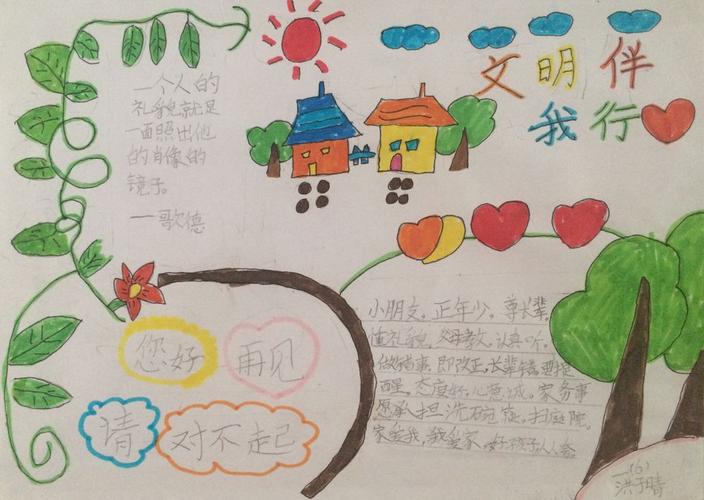 文明伴
我行
一个人的
礼貌就是
一面照出他
的肖像的
镜子。
——歌德
您好
再见
请
对不起
小朋友。正年少。尊长辈,
懂礼貌。父母教,认真听。
做错事,即改正。长辈错,要提
醒。态度好,心意诚。家务事
愿承担。洗碗筷,扫庭院。
家爱我,我爱家。好孩子人人夸
一(6)
洪于晴